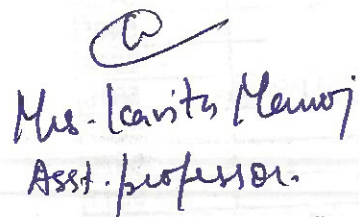 Mrs. Kavita Manoj
Asst. professor.